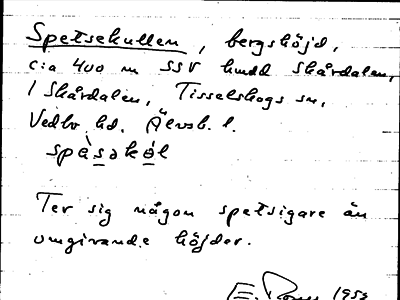 Spetsekullen, bergshöjd,
c:a 400 m SSV hmdd Skårdalen,
/ Skårdalen, Tisselskogs sn,
Vedbo hd. Älvsb. l.
spàsəkəl
Ter sig någon spetsigare än
omgivande höjder.
E. 1953